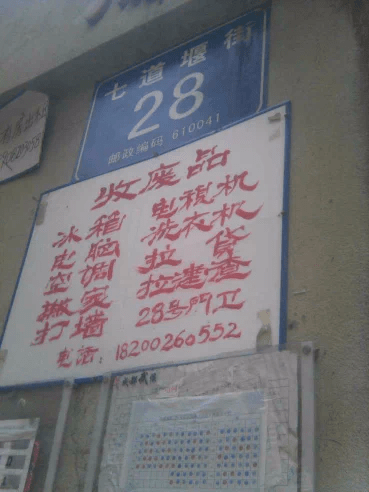 七道堰街
28
邮政编码 610041
收废品
冰箱 电视机
电脑 洗衣机
空调 拉货
搬家 拉建查
打墙 28号門卫
电话：18200260552